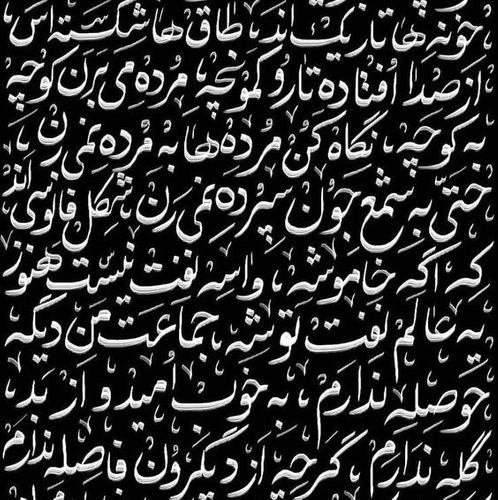 خونه‌ها تاریک‌اند، طاق‌ها شکسته‌اس،
از صدا اُفتاده تار و کمونچه، مُرده می‌برن کوچه
به کوچه، نگاه کُن مُرده‌ها به مُرده نمی‌رن،
حَتّی به شمعِ جون سپُرده نمی‌رن، شکلِ فانوسی‌اند
که اگه خاموشه، واسه نفت نیست هنوز
یه عالم نفت توشه، جماعت من دیگه
حوصله ندارم، به خوب اُمید و از بد،
گله ندارم، گرچه از دیگرون فاصله ندارم